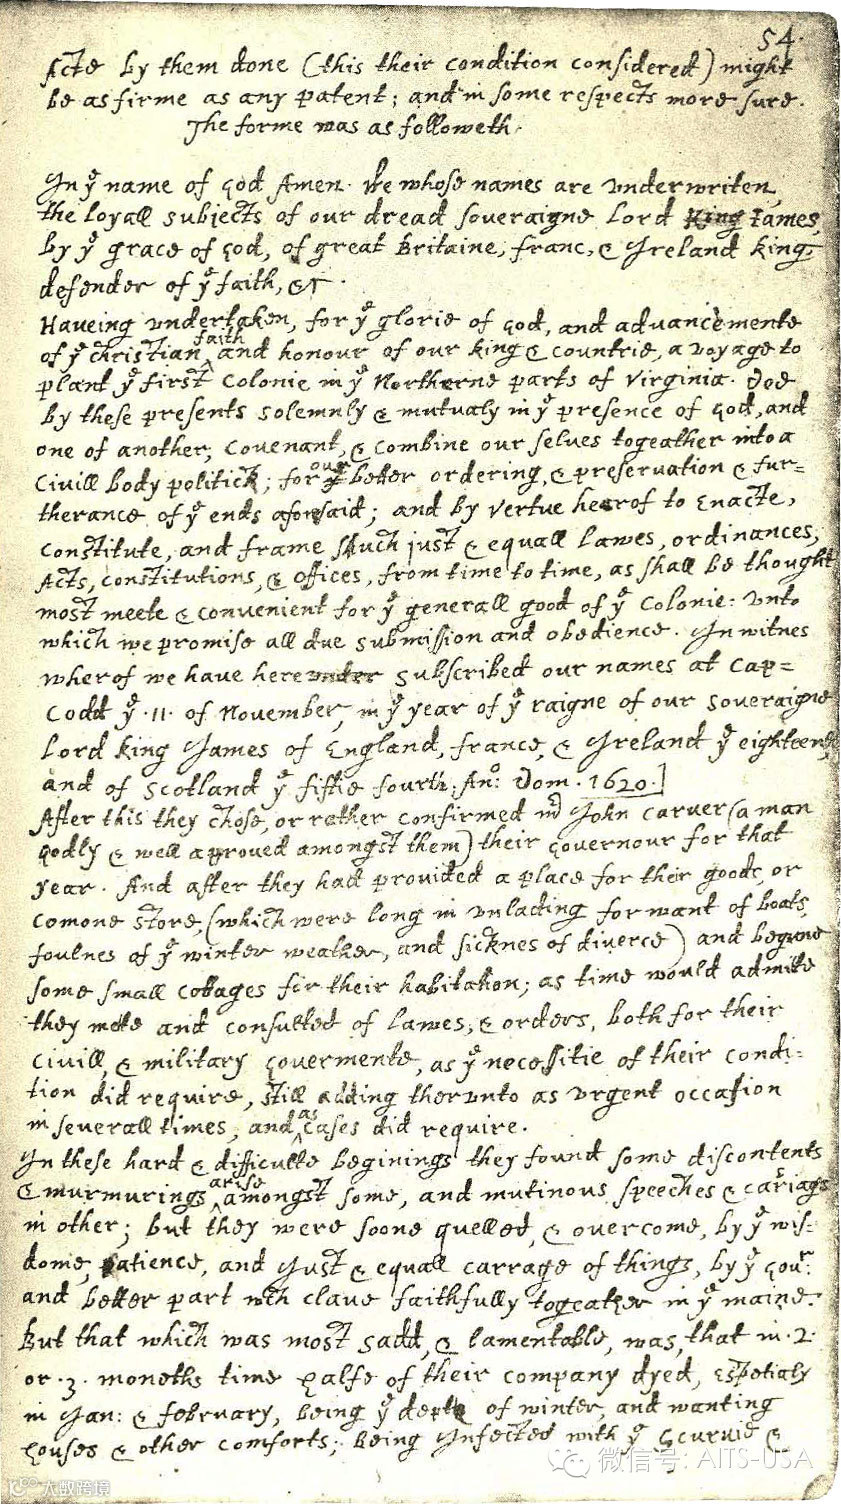 54.
Acts by them done (this their condition considered) might
be as firme as any patent; and in some respects more sure.
The forme was as followeth.
In yͤ name of God Amen. We whose names are underwriten,
the loyall subjects of our dread soveraigne Lord King James,
by yͤ grace of God, of great Britaine, franc, & Ireland king,
defender of yͤ faith, &c.
Haveing undertaken, for yͤ glorie of God, and advancemente
of yͤ christian faith and honour of our king & countrie, a voyage to
plant yͤ first colonie in yͤ Northerne parts of Virginia. Doe
by these presents solemnly & mutualy in yͤ presence of God, and
one of another, covenant, & combine our selves togeather into a
Civill body politick; for our better ordering, & preservation & fur=
therance of yͤ ends aforesaid; and by vertue hearof to Enacte,
constitute, and frame shuch just & equall lawes, ordinances,
Acts, constitutions, & offices, from time to time, as shall be thought
most meete & convenient for yͤ generall good of yͤ Colonie: unto
which we promise all due submission and obedience. In witnes
wherof we have hereunder subscribed our names at Cap=
Codd yͤ .11. of November, in yͤ year of yͤ raigne of our soveraigne
Lord king James of England, france, & Ireland yͤ eighteenth
and of Scotland yͤ fiftie fourth. Anº: Dom. 1620.]
After this they chose, or rather confirmed mʳ John Carver (a man
godly & well approved amongst them) their Governour for that
year. And after they had provided a place for their goods, or
comone store, (which were long in unlading for want of boats,
foulnes of yͤ winter weather, and sicknes of diverce) and begune
some small cottages for their habitation; as time would admitte
they mete and consulted of lawes, & orders, both for their
civill, & military Govermente, as yͤ necessitie of their condi=
tion did require, still adding therunto as urgent occasion
in severall times, and as cases did require.
In these hard & difficulte beginings they found some discontents
& murmurings arise amongst some, and mutinous speeches & cariags
in other; but they were soone quelled, & overcome, by yͤ wis=
dome, patience, and just & equall carrage of things, by yͤ Govʳ:
and better part wch clave faithfully togeather in yͤ maine.
But that which was most sadd, & lamentable, was, that in .2.
or .3. moneths time halfe of their company dyed, espetialy
in Jan: & february, being yͤ depth of winter, and wanting
houses & other comforts; being Infected with yͤ scurvie &
微信号: AITS-USA
大数跨境